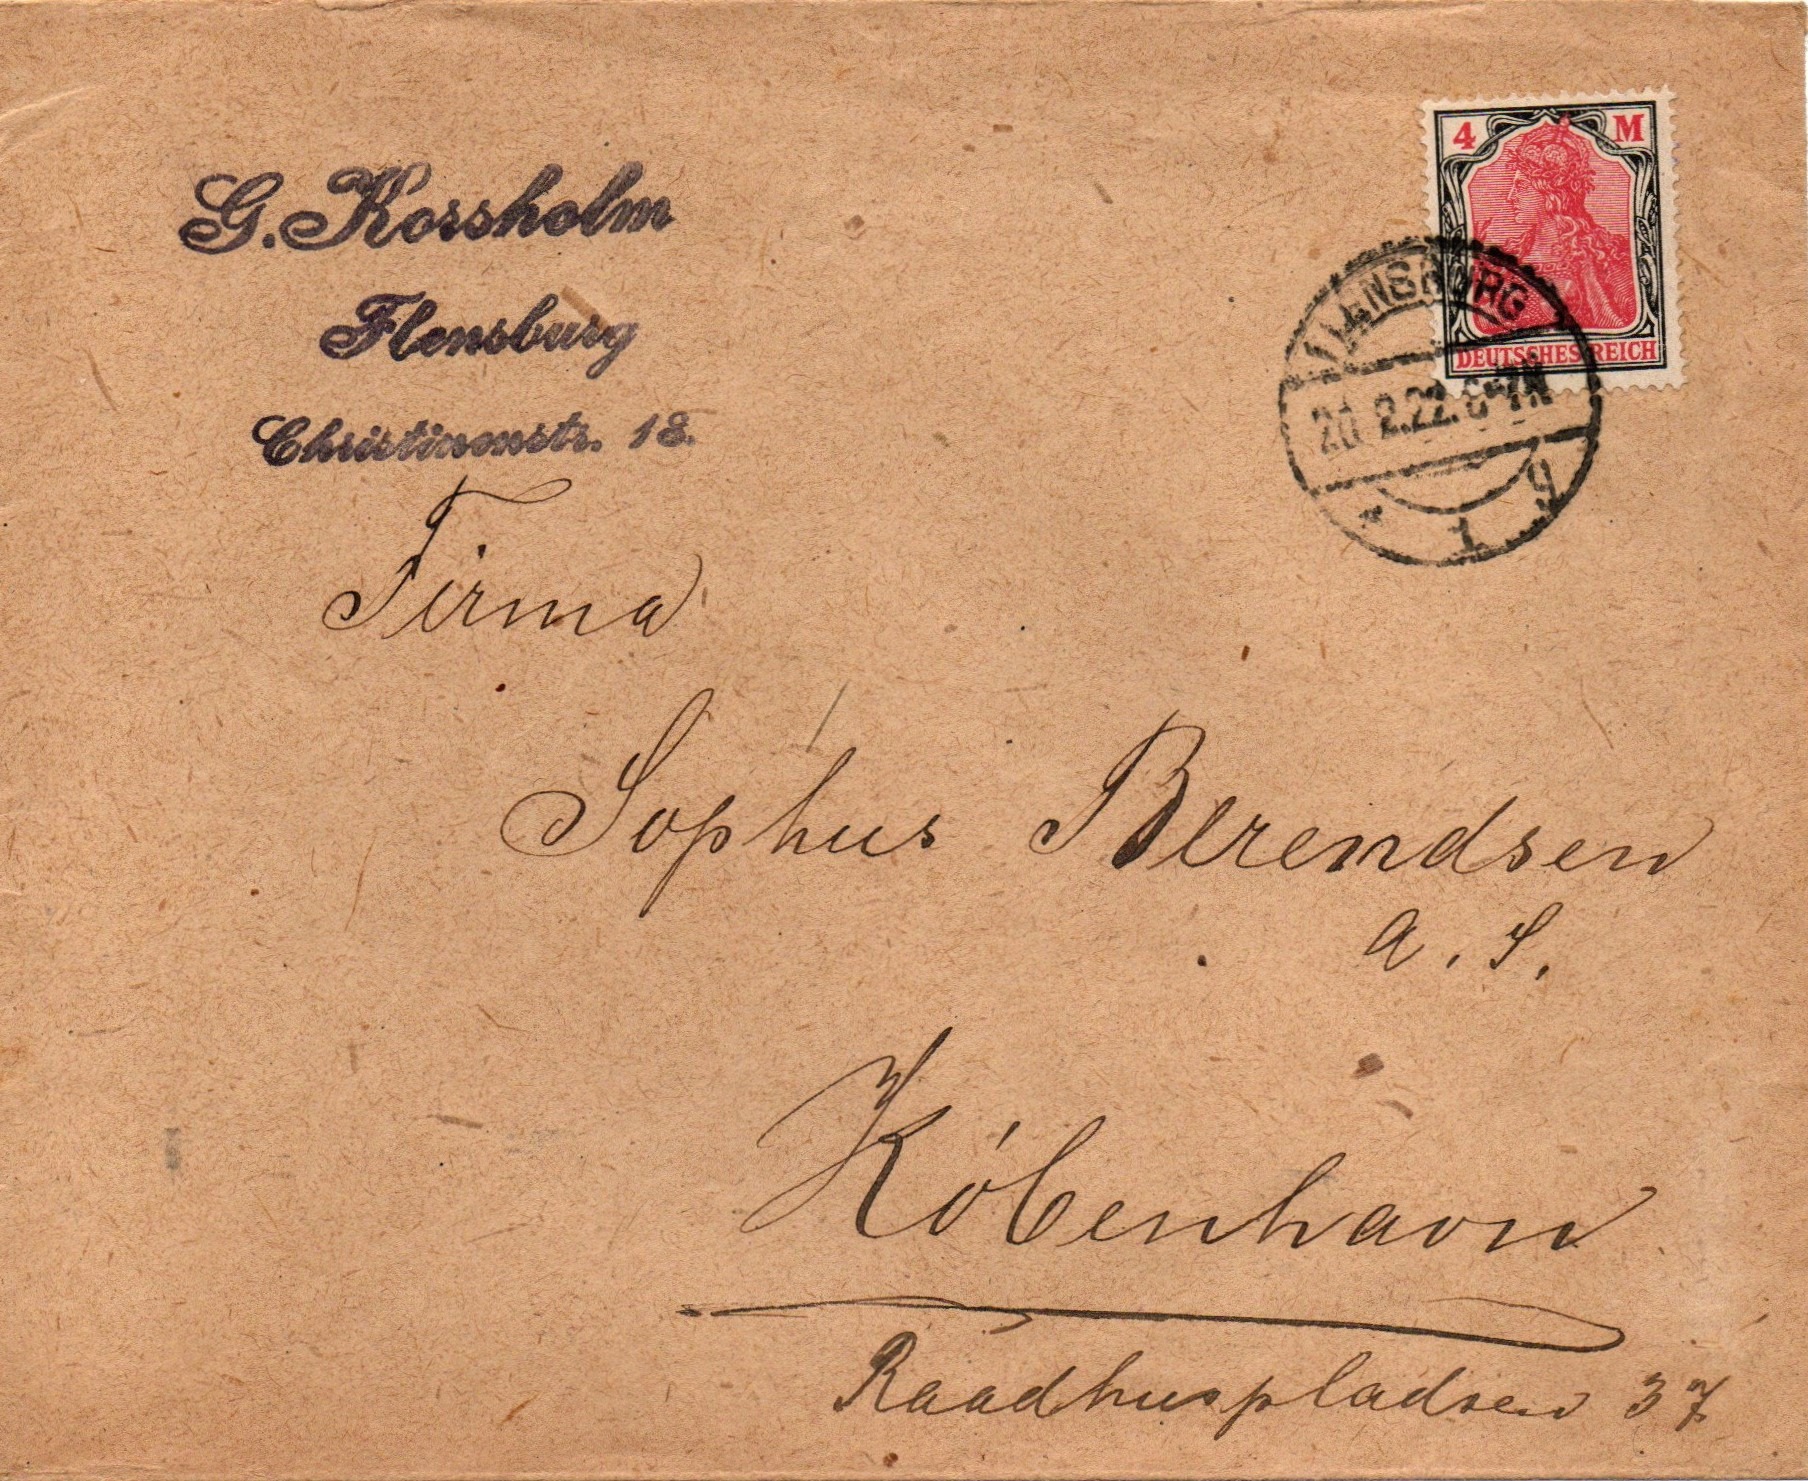 G. Korsholm
Flensburg
Christinenstr. 18.
4 M
DEUTSCHES REICH
FLENSBURG
20. 2.22. 6-7N
* 1 g
Firma
Sophus Berendsen
A. S.
Kóbenhavn
Raadhuspladsen 37